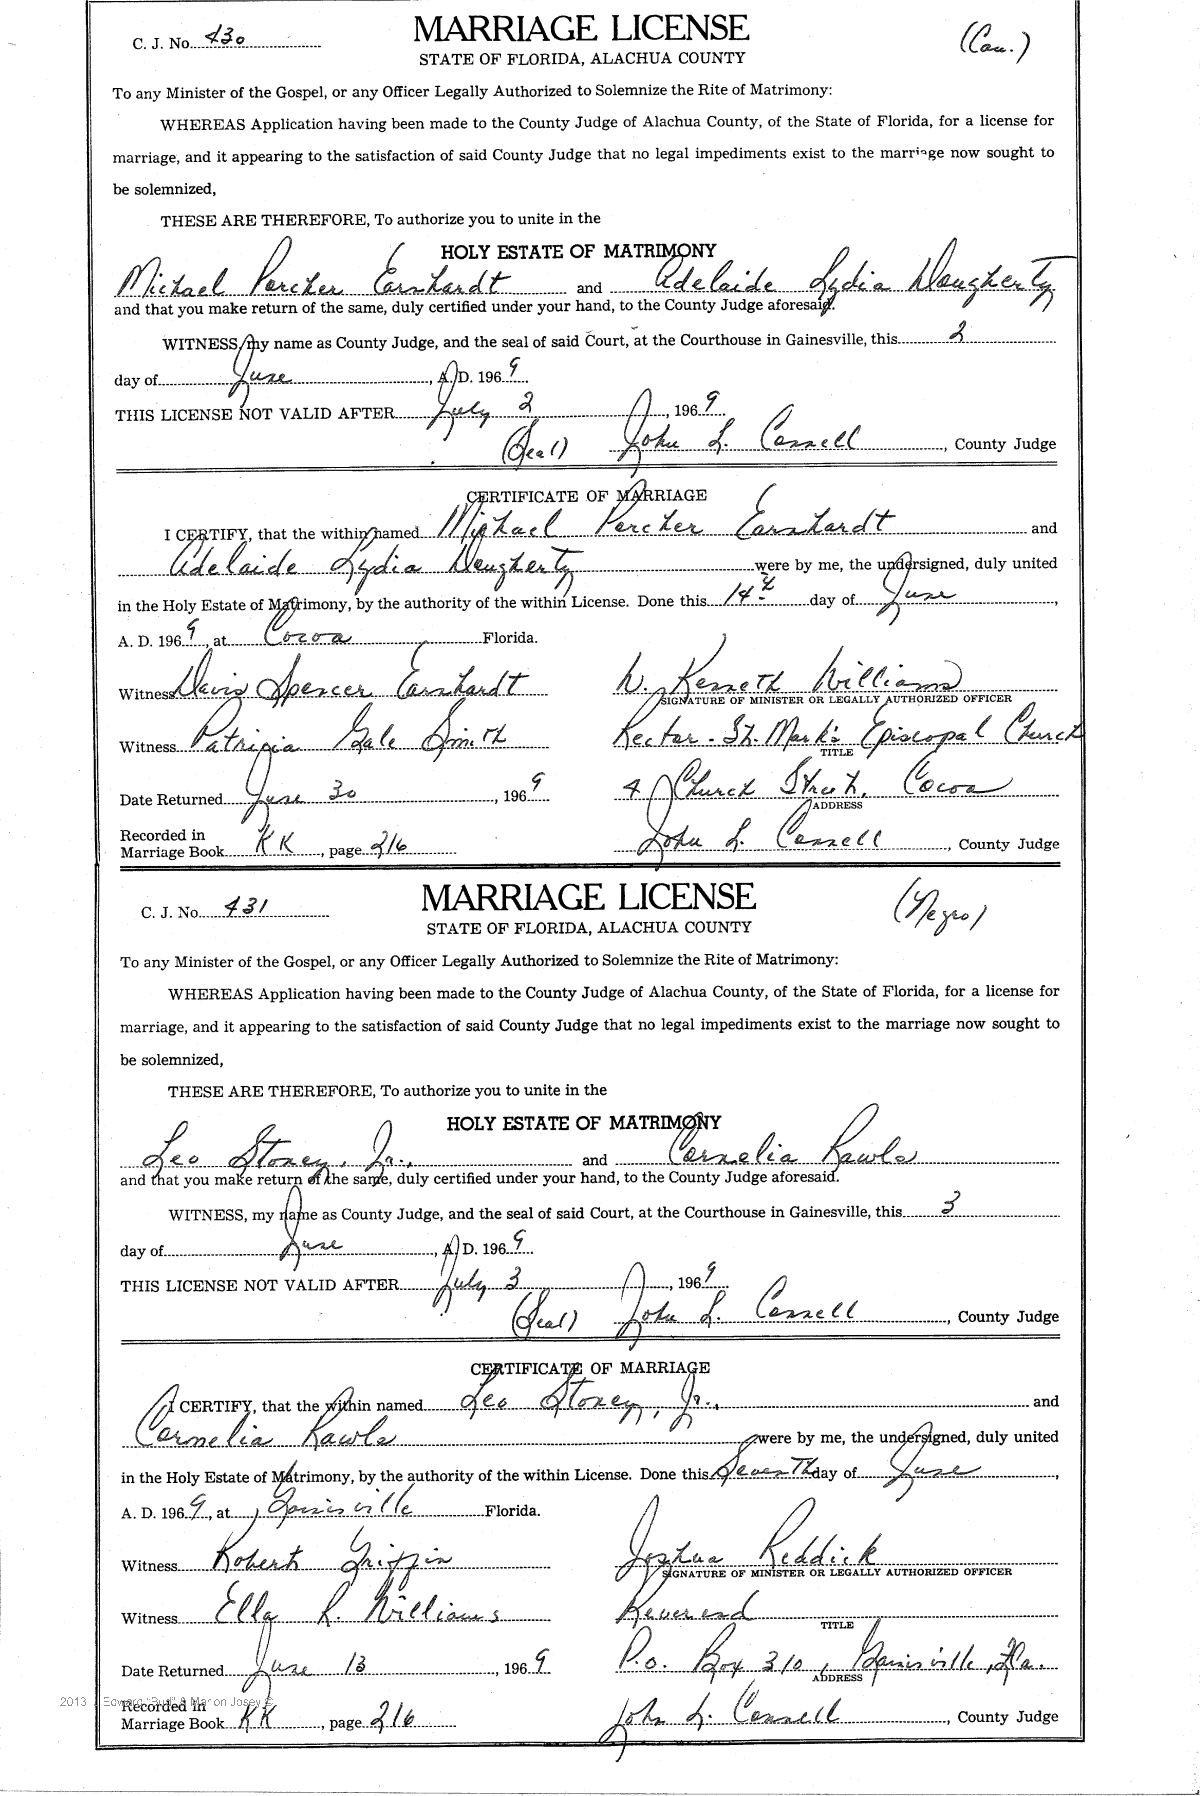 C. J. No. 430 MARRIAGE LICENSE (Cau.)
STATE OF FLORIDA, ALACHUA COUNTY
To any Minister of the Gospel, or any Officer Legally Authorized to Solemnize the Rite of Matrimony:
WHEREAS Application having been made to the County Judge of Alachua County, of the State of Florida, for a license for
marriage, and it appearing to the satisfaction of said County Judge that no legal impediments exist to the marriage now sought to
be solemnized,
THESE ARE THEREFORE, To authorize you to unite in the
HOLY ESTATE OF MATRIMONY
Michael Porcher Earnhardt and Adelaide Lydia Dougherty
and that you make return of the same, duly certified under your hand, to the County Judge aforesaid.
WITNESS, my name as County Judge, and the seal of said Court, at the Courthouse in Gainesville, this 2
day of June, A. D. 1969.
THIS LICENSE NOT VALID AFTER July 2, 1969
(Seal) John L. Connell, County Judge
CERTIFICATE OF MARRIAGE
I CERTIFY, that the within named Michael Porcher Earnhardt and
Adelaide Lydia Dougherty were by me, the undersigned, duly united
in the Holy Estate of Matrimony, by the authority of the within License. Done this 14th day of June,
A. D. 1969, at Cocoa Florida.
Witness David Spencer Earnhardt W. Kenneth Williams
SIGNATURE OF MINISTER OR LEGALLY AUTHORIZED OFFICER
Witness Patricia Gale Smith Rector - St. Mark's Episcopal Church
TITLE
Date Returned June 30, 1969 4 Church Street, Cocoa
ADDRESS
Recorded in
Marriage Book KK, page 216 John L. Connell, County Judge
C. J. No. 431 MARRIAGE LICENSE (Negro)
STATE OF FLORIDA, ALACHUA COUNTY
To any Minister of the Gospel, or any Officer Legally Authorized to Solemnize the Rite of Matrimony:
WHEREAS Application having been made to the County Judge of Alachua County, of the State of Florida, for a license for
marriage, and it appearing to the satisfaction of said County Judge that no legal impediments exist to the marriage now sought to
be solemnized,
THESE ARE THEREFORE, To authorize you to unite in the
HOLY ESTATE OF MATRIMONY
Leo Stoney, Jr., and Cornelia Rawls
and that you make return of the same, duly certified under your hand, to the County Judge aforesaid.
WITNESS, my name as County Judge, and the seal of said Court, at the Courthouse in Gainesville, this 3
day of June, A. D. 1969.
THIS LICENSE NOT VALID AFTER July 3, 1969
(Seal) John L. Connell, County Judge
CERTIFICATE OF MARRIAGE
I CERTIFY, that the within named Leo Stoney, Jr., and
Cornelia Rawls were by me, the undersigned, duly united
in the Holy Estate of Matrimony, by the authority of the within License. Done this Seventh day of June,
A. D. 1969, at Gainisville Florida.
Witness Robert Griffin Joshua Reddick
SIGNATURE OF MINISTER OR LEGALLY AUTHORIZED OFFICER
Witness Ella R. Williams Reverend
TITLE
Date Returned June 13, 1969 P.O. Box 310, Gainisville, Fla.
ADDRESS
2013 Edward "Bud" & Marion Josey ©
Recorded in
Marriage Book KK, page 216 John L. Connell, County Judge